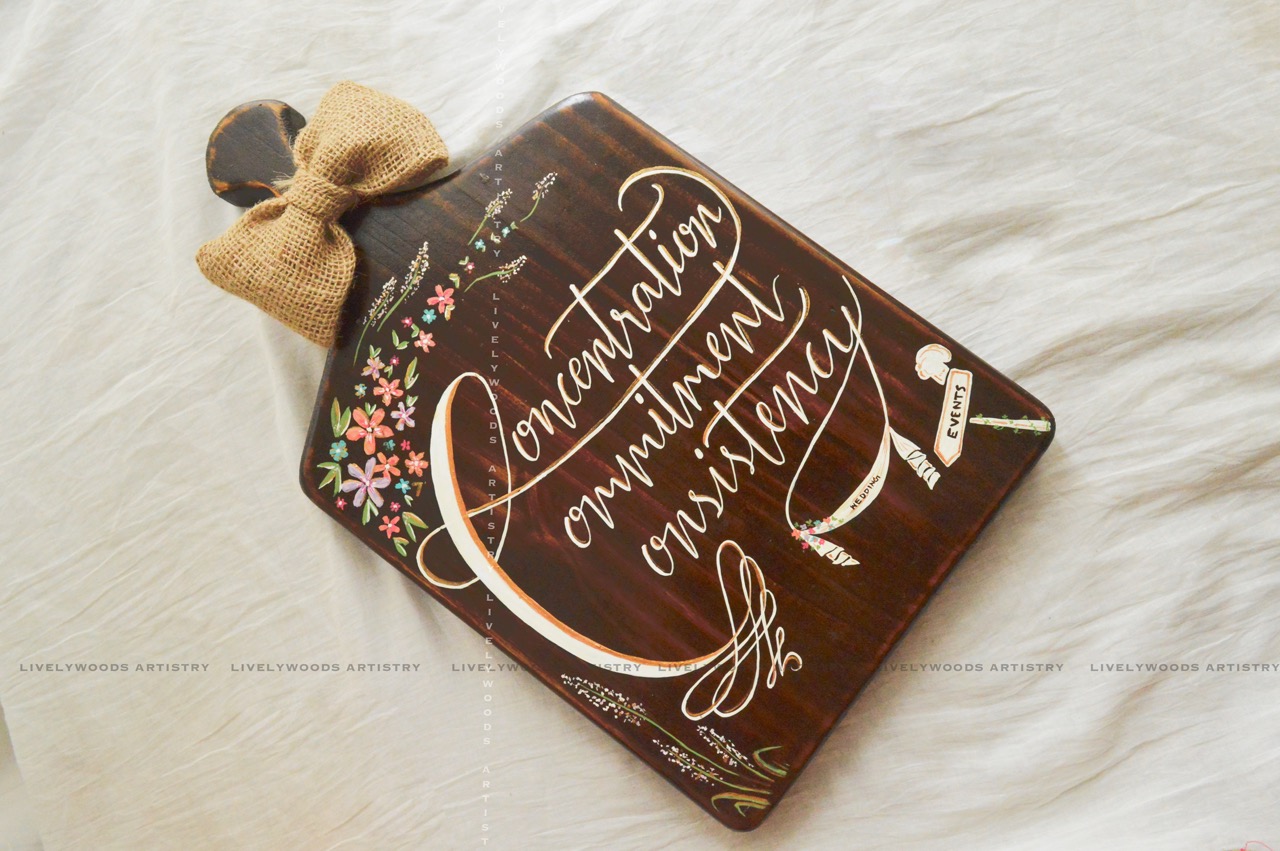 Concentration
ommitment
onsistency
WEDDING
EVENTS
LIVELYWOODS ARTISTRY LIVELYWOODS ARTISTRY LIVELYWOODS ARTISTRY LIVELYWOODS ARTISTRY LIVELYWOODS ARTISTRY
LIVELYWOODS ARTISTRY LIVELYWOODS ARTISTRY LIVELYWOODS ARTIST